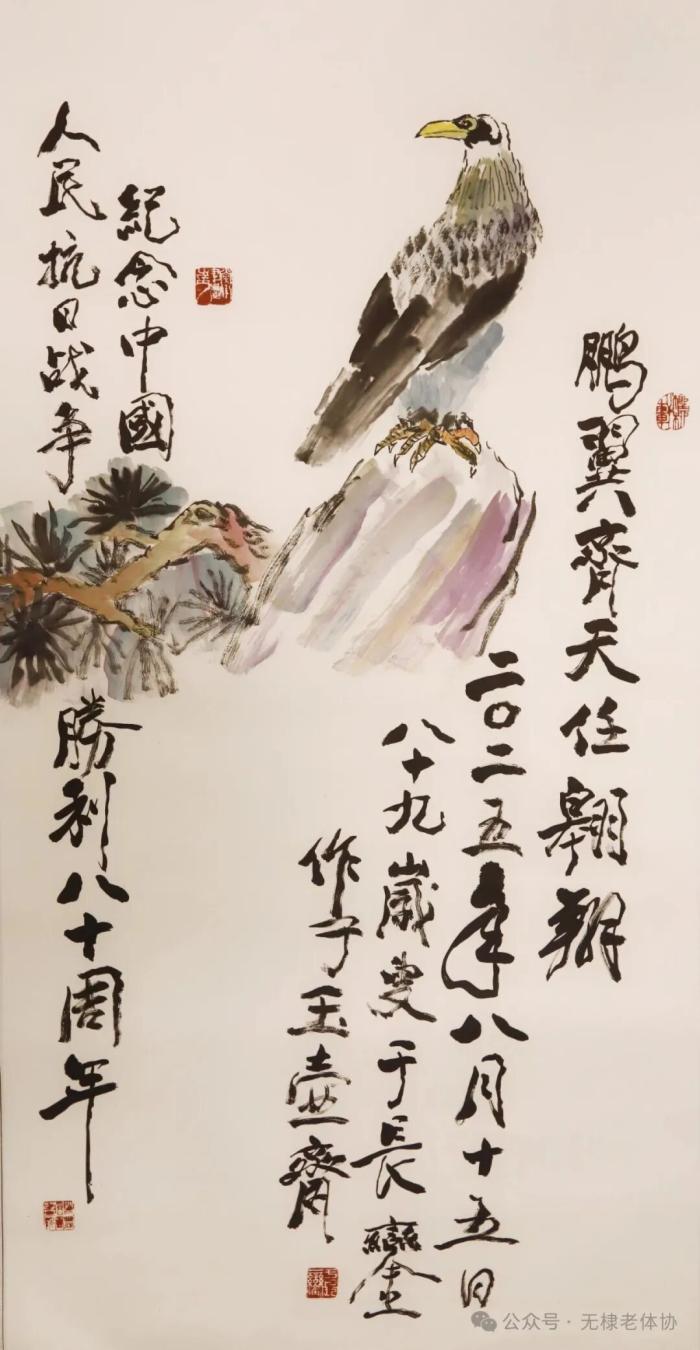 鵬翼齊天任翱翔
二〇二五年八月十五日
八十九歲叟于長鑾
作于玉壺齋
紀念中國
人民抗日战争
勝利八十周年
公众号·无棣老体协